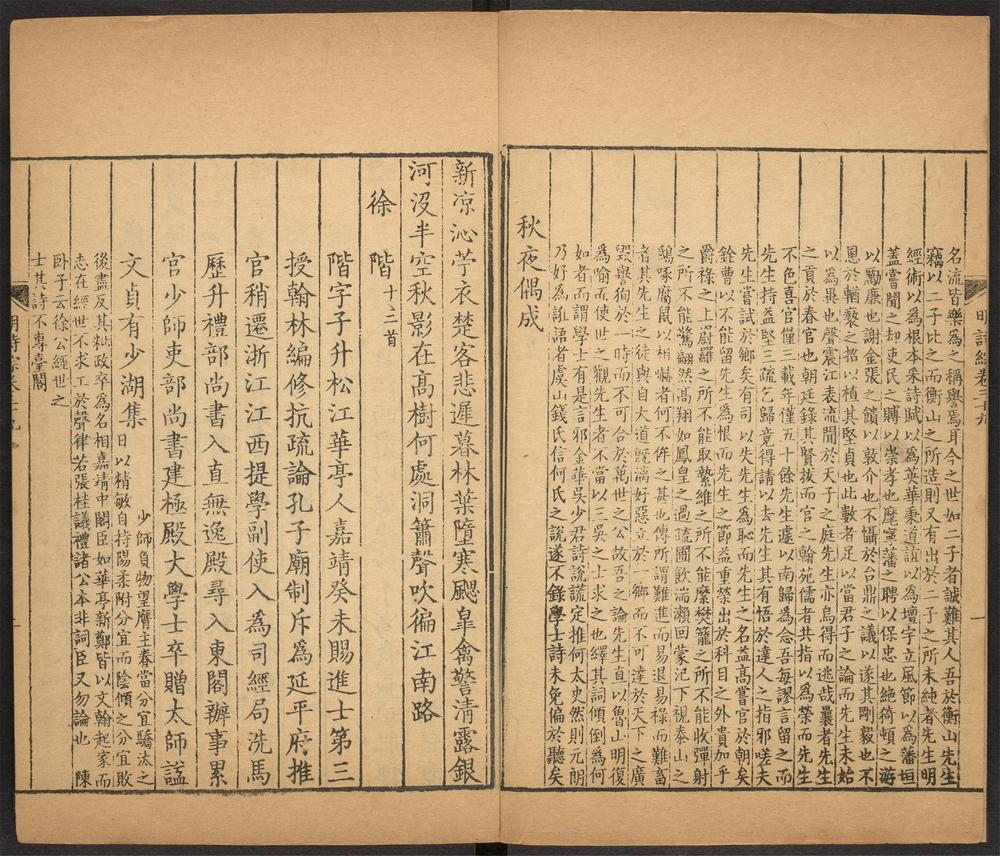 名流皆樂為之稱譽焉耳今之世如二子者誠難其人吾於衡山先生
竊以二子比之而衡山之所造則又有出於二子之所未純者先生明
經術以為根本采詩賦以為英華秉道誼以為壇宇立風節以為藩垣
蓋嘗聞之却吏民之賻以崇孝也麾寧藩之聘以保忠也絶猗頓之游
以勵廉也謝金張之饋以敦介也不懾於台鼎之議以遂其剛毅也不
恩於輶褻之招以植其堅貞也此數者足以當君子之論而先生未始
以為異也聲震江表流聞於天子之庭先生亦烏得而逃哉曩者先生
之貢於春官也朝廷錄其賢拔而官之翰苑儒者共指以為榮而先生
不色喜官僅三載年僅五十餘先生遽以南歸為念吾每謬言留之而
先生持益堅三疏乞歸竟得請以去先生其有悟於達人之指邪嗟夫
先生嘗試於鄉矣有司以失先生為恥而先生之名益高嘗官於朝矣
銓曹以不能留先生為恨而先生之節益重榮出於科目之外貴加乎
爵祿之上罻羅之所不能取縶維之所不能縻樊籠之所不能收彈射
之所不能驚翩然高翔如鳳皇之過疏圃飲湍瀨回蒙汜下視泰山之
鴟啄腐鼠以相嚇者何不侔之甚也傳所謂難進而易退易祿而難畜
者其先生之徒與自大道既漓好惡立於一鄉而不可達於天下之廣
毀譽狥於一時而不可合於萬世之公故吾之論先生直以魯山明復
為喻而使世之觀先生者不當以三吳之士求之也繹其詞傾倒為何
如者而謂學士有是言邪金華吳少君詩說謊定推何太史然則元朗
乃好為訛語者虞山錢氏信何氏之說遂不錄學士詩未免偏於聽矣
秋夜偶成
新凉沁苧衣楚客悲遲暮林葉墮寒颸皐禽警清露銀
河没半空秋影在高樹何處洞簫聲吹徧江南路
徐階十三首
階字子升松江華亭人嘉靖癸未賜進士第三
授翰林編修抗疏論孔子廟制斥為延平府推
官稍遷浙江江西提學副使入為司經局洗馬
歷升禮部尚書入直無逸殿尋入東閣辦事累
官少師吏部尚書建極殿大學士卒贈太師謚
文貞有少湖集
少師負物望膺主眷當分宜驕汰之
日以精敏自持陽柔附分宜而陰傾之分宜敗
後盡反其秕政卒為名相嘉靖中閣臣如華亭新鄭皆以文翰起家而
志在經世不求工於聲律若張桂議禮諸公本非詞臣又勿論也 陳
卧子云徐公經世之
士其詩不專臺閣